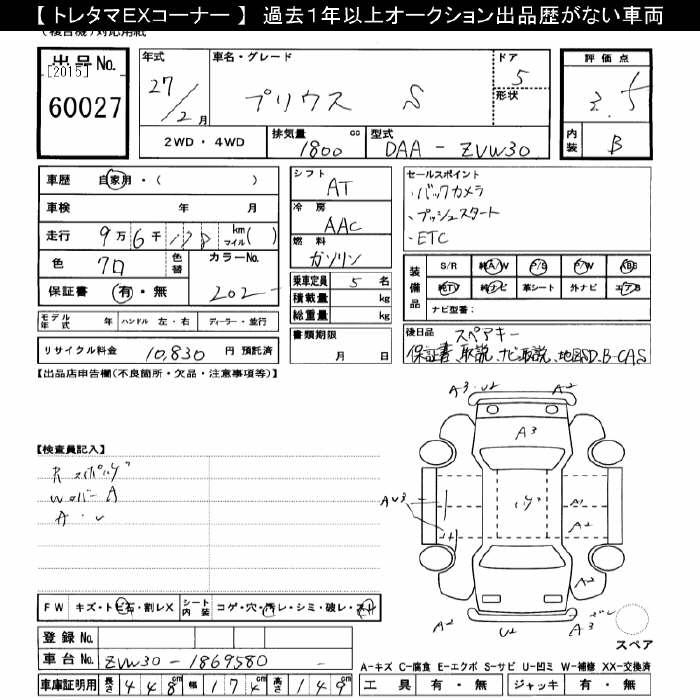 【 トレタマEXコーナー 】 過去1年以上オークション出品歴がない車両
(複合機)対応用紙
出品No.
[2015]
60027
年式
27/2月
車名・グレード
プリウス S
ドア
5
形状
評価点
3.5
内装
B
2WD・4WD
排気量 1800 cc
型式 DAA-ZVW30
車歴 自家用・( )
車検 年 月
走行 9万6千178 km マイル( )
色 クロ 色替
カラーNo. 202
保証書 有・無
シフト
AT
冷房
AAC
燃料
ガソリン
乗車定員 5 名
積載量 kg
総重量 kg
書類期限
月 日
セールスポイント
・バックカメラ
・プッシュスタート
・ETC
装備品
S/R 純A/W P/S P/W ABS
純TV 純ナビ 革シート 外ナビ エアB
ナビ型番:
モデル年式 年 ハンドル 左・右 ディーラー・並行
リサイクル料金 10,830 円 預託済
後日品 スペアキー
保証書、取説、ナビ取説、地図SD、B-CAS
【出品店申告欄(不良箇所・欠品・注意事項等)】
【検査員記入】
WカバーA
A・U
A3・U2
A2
A3
AU3
A1
A2
A2
A2
U2
A3
スペア
FW キズ・トビ石・割レX
シート内装 コゲ・穴・汚レ・シミ・破レ・スレ
登録No.
車台No. ZVW30-1869580
車庫証明用 長さ 448cm 幅 174cm 高さ 149cm
A―キズ C―腐食 E―エクボ S―サビ U―凹ミ W―補修 XX―交換済
工具 有・無 ジャッキ 有・無